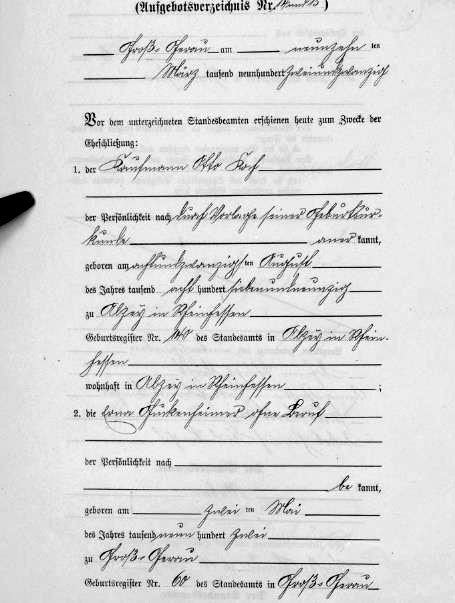 (Aufgebotsverzeichnis Nr. 14 und 15)
Groß-Gerau am neunzehn ten
März tausend neunhundert zweiundzwanzig
Vor dem unterzeichneten Standesbeamten erschienen heute zum Zwecke der
Eheschließung:
1. der Kaufmann Otto Koch
der Persönlichkeit nach durch Vorlage seiner Geburtsur-
kunde aner kannt,
geboren am achtundzwanzigsten August
des Jahres tausend acht hundert siebenundneunzig
zu Alzey in Rheinhessen
Geburtsregister Nr. 140 des Standesamts in Alzey in Rhein-
hessen
wohnhaft in Alzey in Rheinhessen ;
2. die Erna Guckenheimer ohne Beruf
der Persönlichkeit nach
be kannt,
geboren am zwei ten Mai
des Jahres tausend neun hundert zwei
zu Groß-Gerau
Geburtsregister Nr. 60 des Standesamts in Groß-Gerau